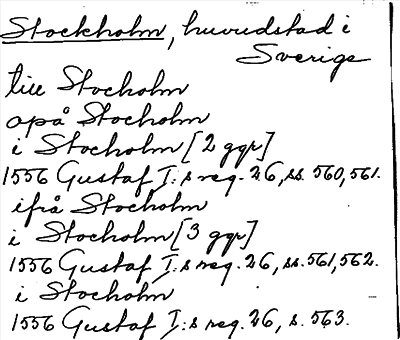 Stockholm, huvudstad i
Sverige
till Stocholm
opå Stocholm
i Stocholm [2 ggr]
1556 Gustaf I:s reg. 26, ss. 560, 561.
ifrå Stocholm
i Stocholm [3 ggr]
1556 Gustaf I:s reg. 26, ss. 561, 562.
i Stocholm
1556 Gustaf I:s reg. 26, s. 563.